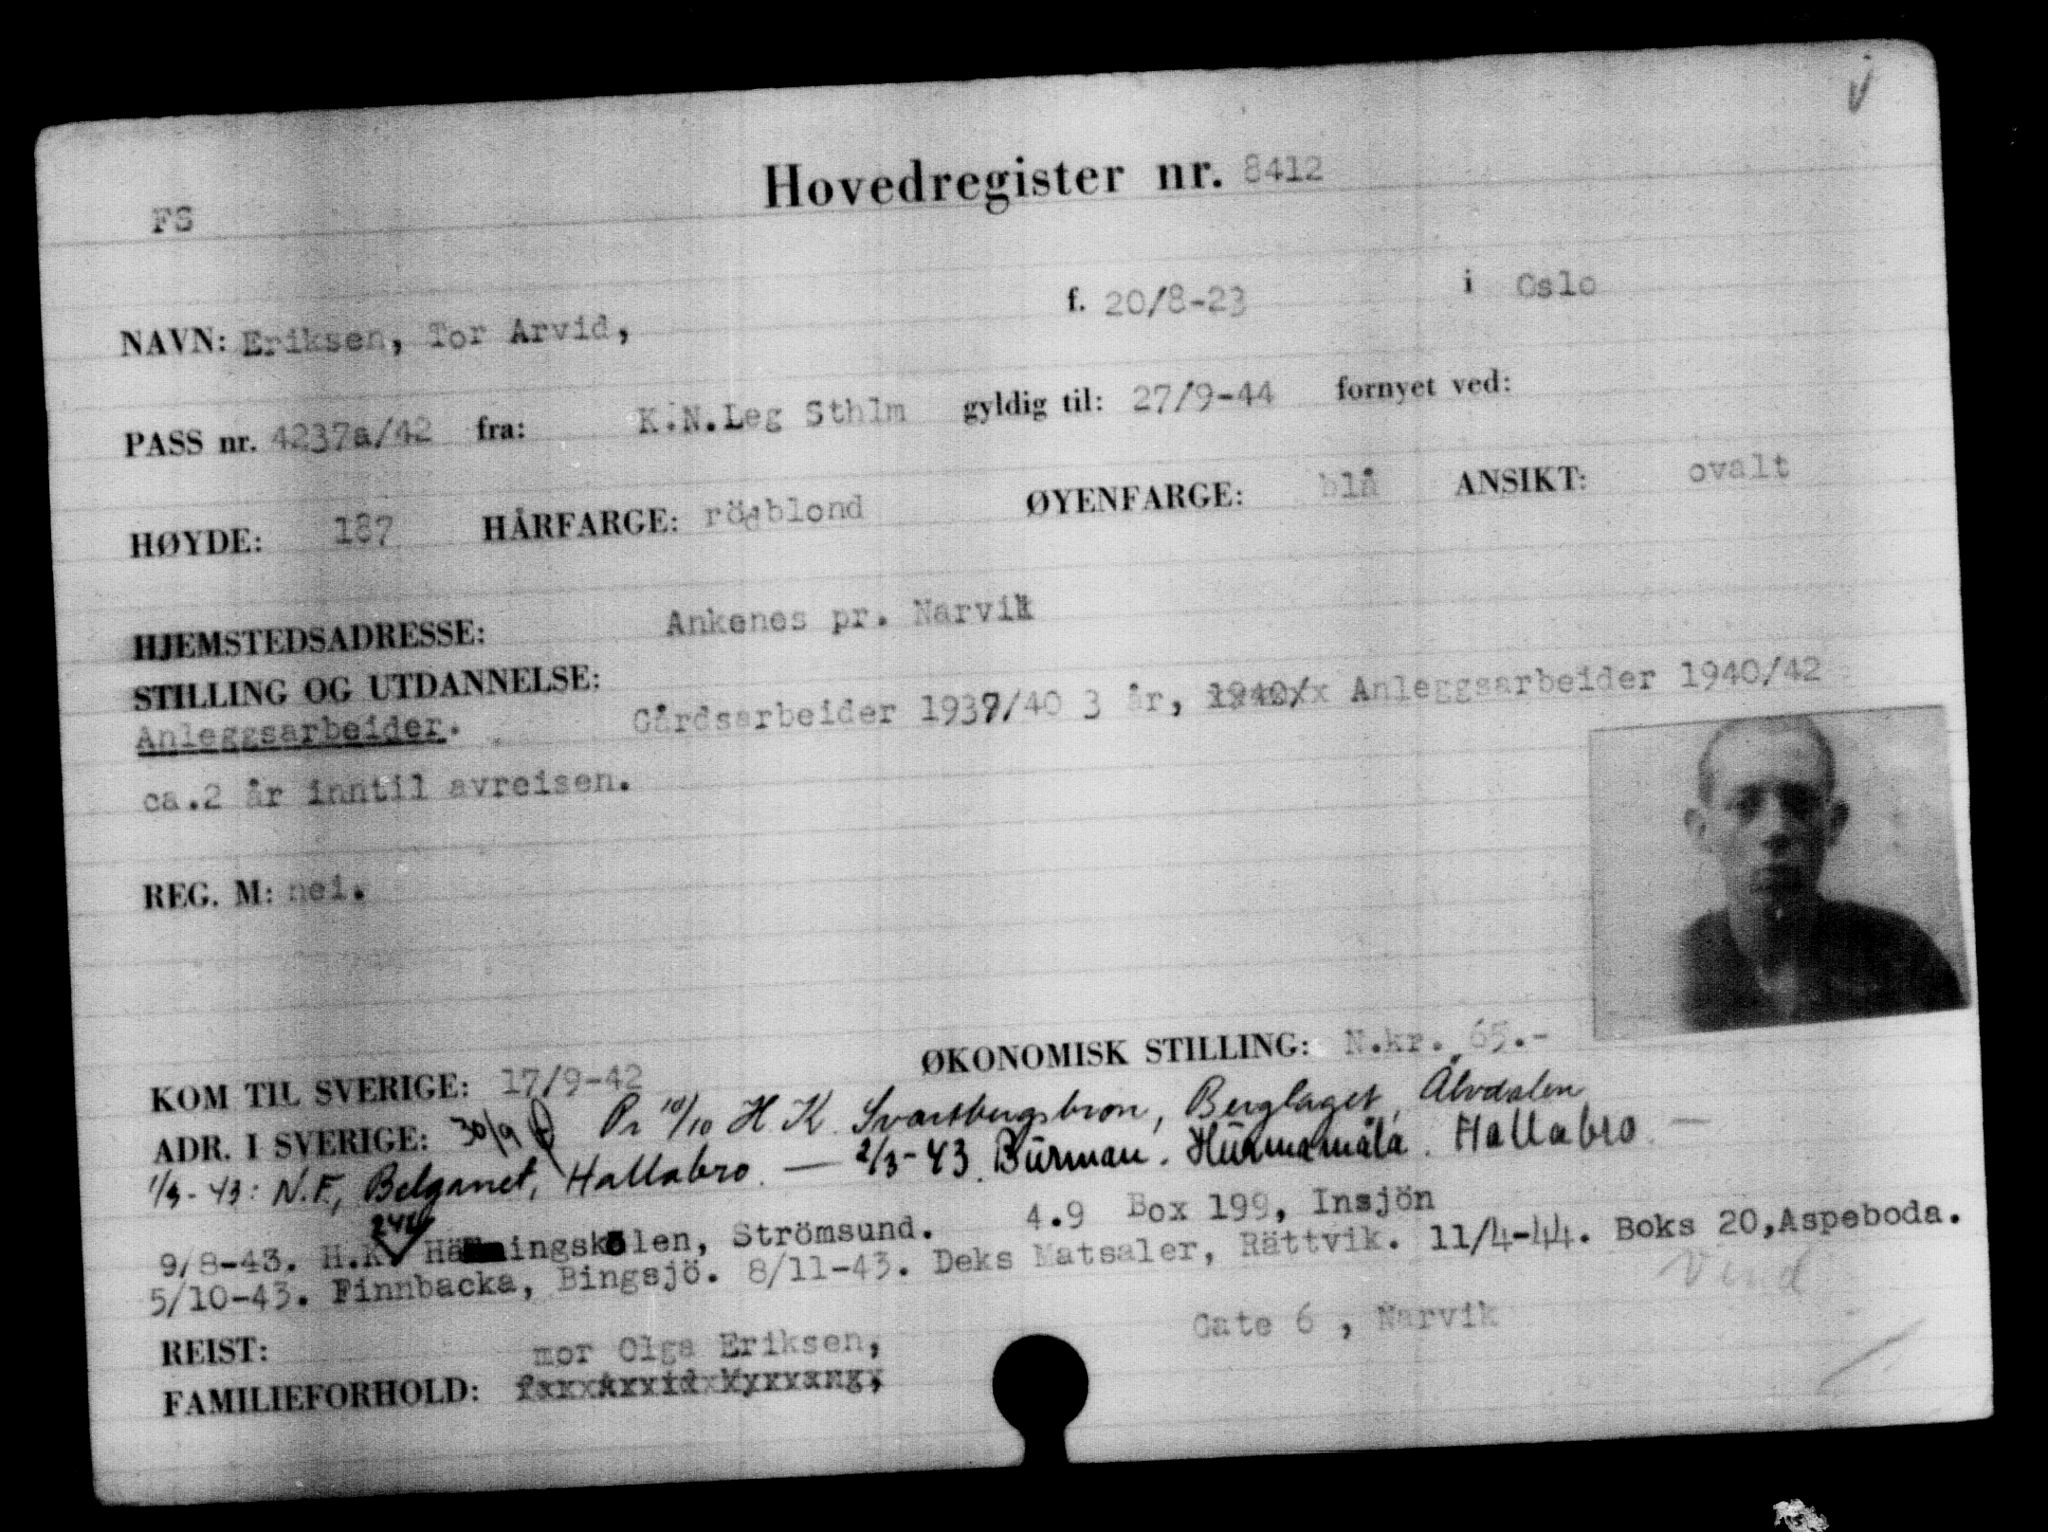 Hovedregister nr. 8412
FS
NAVN: Eriksen, Tor Arvid, f. 20/8-23 i Oslo
PASS nr. 4237a/42 fra: K.N.Leg Sthlm gyldig til: 27/9-44 fornyet ved:
HØYDE: 187 HÅRFARGE: rödblond ØYENFARGE: blå ANSIKT: ovalt
HJEMSTEDSADRESSE: Ankenes pr. Narvik
STILLING OG UTDANNELSE:
Anleggsarbeider. Gårdsarbeider 1937/40 3 år, Anleggsarbeider 1940/42
ca.2 år inntil avreisen.
REG. M: nei.
ØKONOMISK STILLING: N.kr. 65.-
KOM TIL SVERIGE: 17/9-42
ADR. I SVERIGE: 30/9 Pr 10/10 H K Svartbergsbron, Berglaget, Älvdalen
1/3-43: N.F., Belganet, Hallabro. — 2/3-43. Burman. Hurmamåla. Hallabro —
9/8-43. H.K. ningskolen, Strömsund. 4.9 Box 199, Insjön
5/10-43. Finnbacka, Bingsjö. 8/11-43. Deks Matsaler, Rättvik. 11/4-44. Boks 20, Aspeboda.
Vend
REIST:
mor Olga Eriksen, Gate 6, Narvik
FAMILIEFORHOLD: